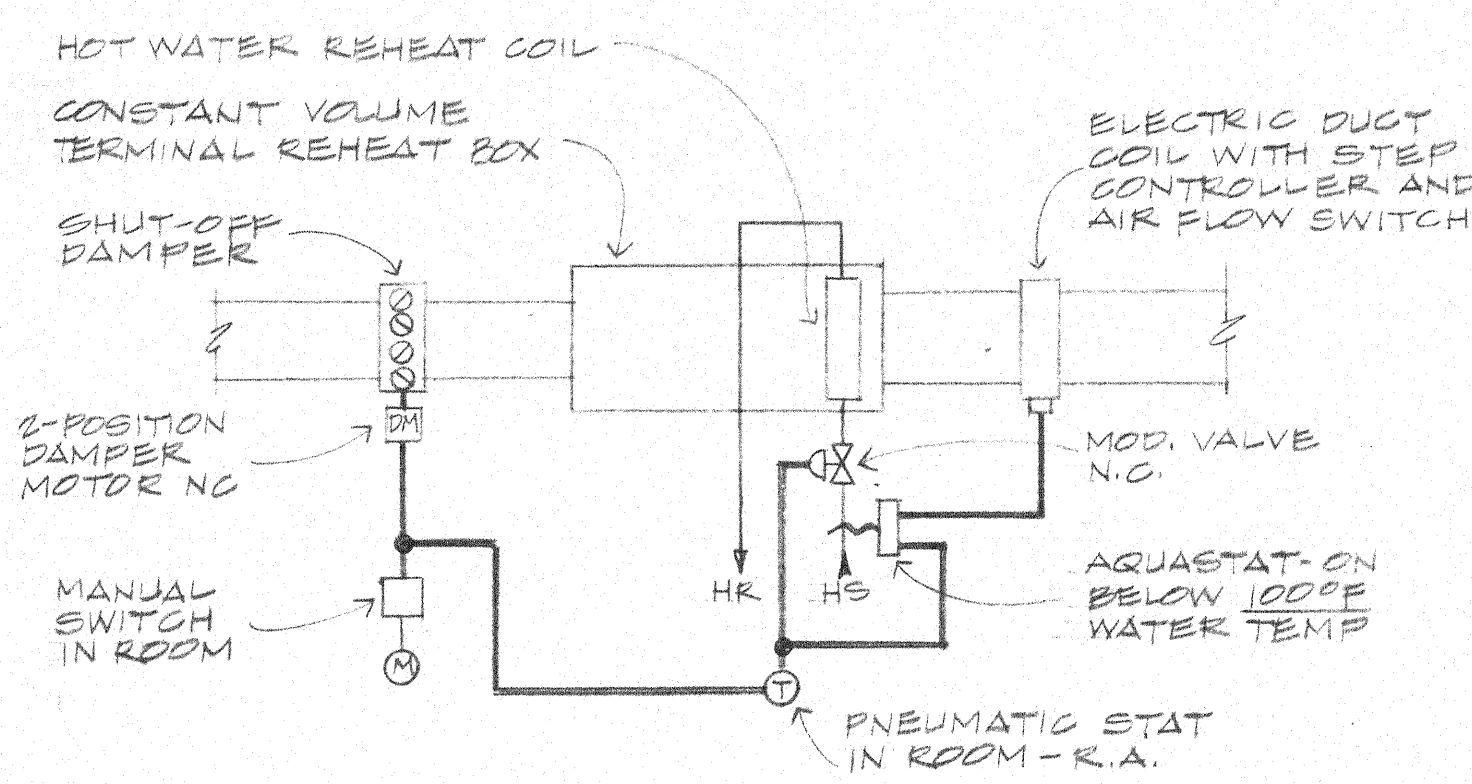 HOT WATER REHEAT COIL
CONSTANT VOLUME
TERMINAL REHEAT BOX
SHUT-OFF
DAMPER
ELECTRIC DUCT
COIL WITH STEP
CONTROLLER AND
AIR FLOW SWITCH
2-POSITION
DAMPER
MOTOR NC
DM
MOD. VALVE
N.C.
MANUAL
SWITCH
IN ROOM
M
HR
HS
AQUASTAT-ON
BELOW 100°F
WATER TEMP
T
PNEUMATIC STAT
IN ROOM - R.A.